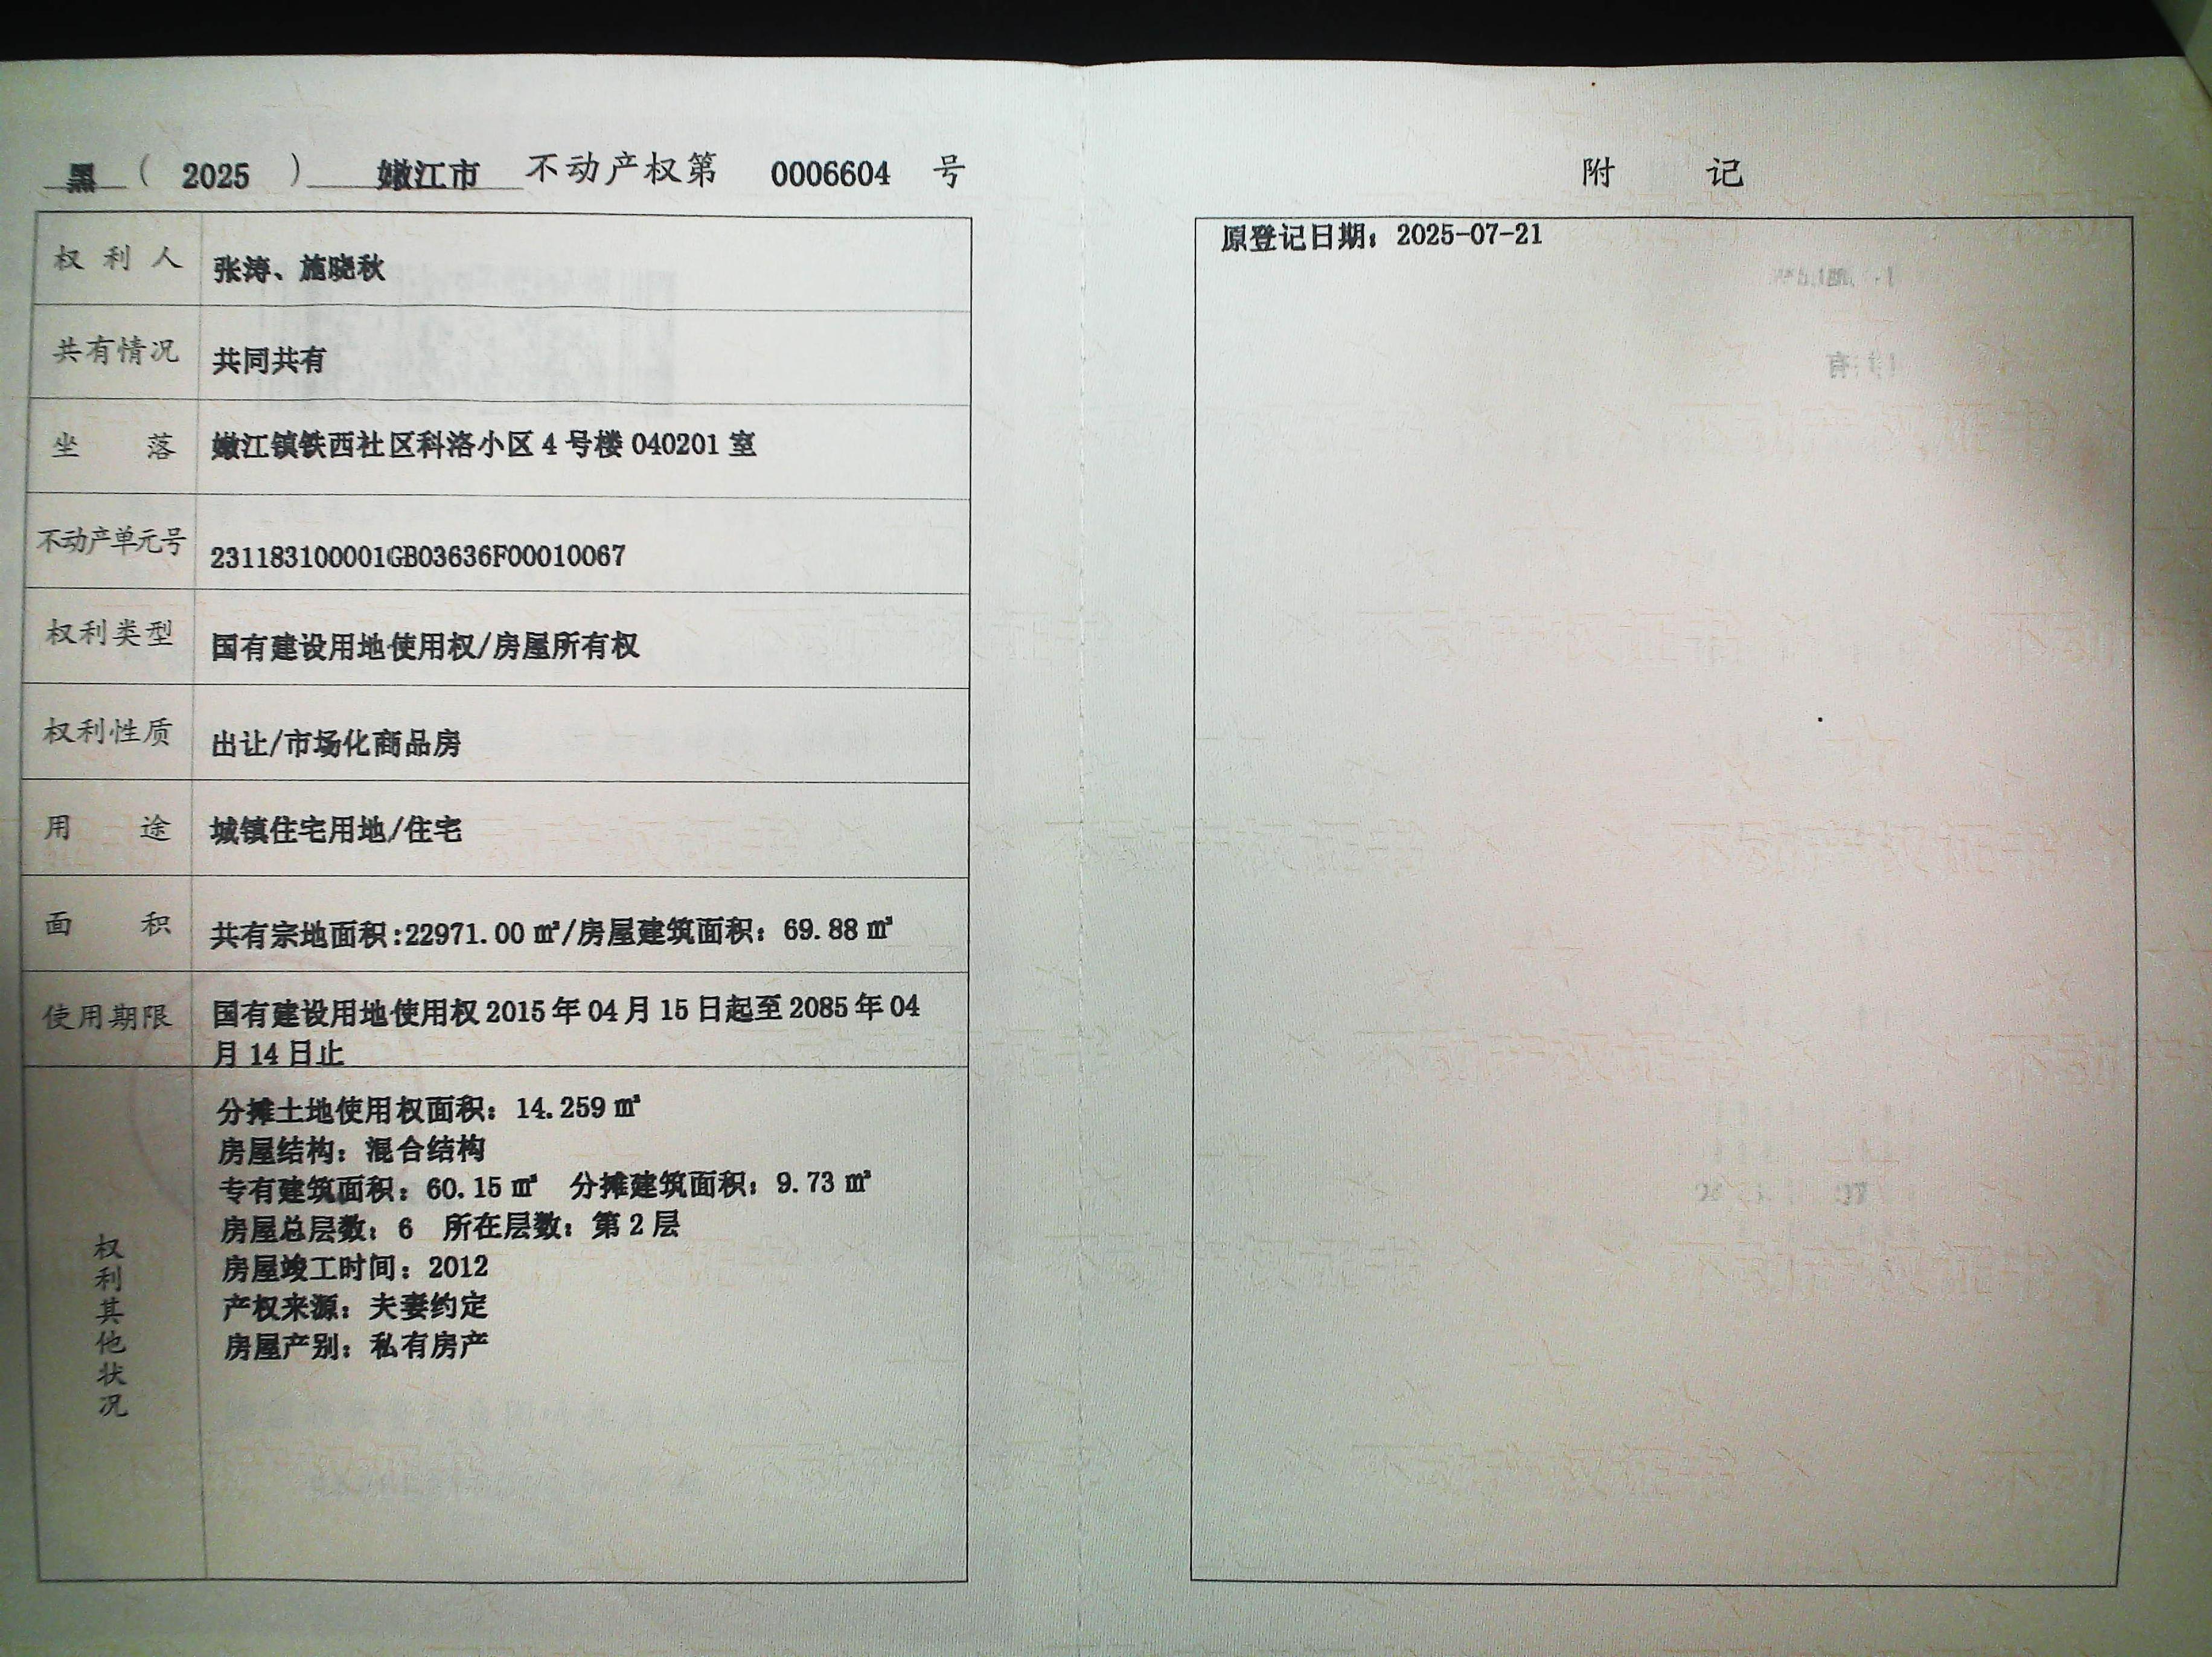 黑（2025）嫩江市不动产权第 0006604 号
权利人 张涛、施晓秋
共有情况 共同共有
坐落 嫩江镇铁西社区科洛小区 4 号楼 040201 室
不动产单元号 231183100001GB03636F00010067
权利类型 国有建设用地使用权/房屋所有权
权利性质 出让/市场化商品房
用途 城镇住宅用地/住宅
面积 共有宗地面积:22971.00 ㎡/房屋建筑面积：69.88 ㎡
使用期限 国有建设用地使用权 2015 年 04 月 15 日起至 2085 年 04
月 14 日止
权利其他状况
分摊土地使用权面积：14.259 ㎡
房屋结构：混合结构
专有建筑面积：60.15 ㎡ 分摊建筑面积：9.73 ㎡
房屋总层数：6 所在层数：第 2 层
房屋竣工时间：2012
产权来源：夫妻约定
房屋产别：私有房产
附记
原登记日期：2025-07-21